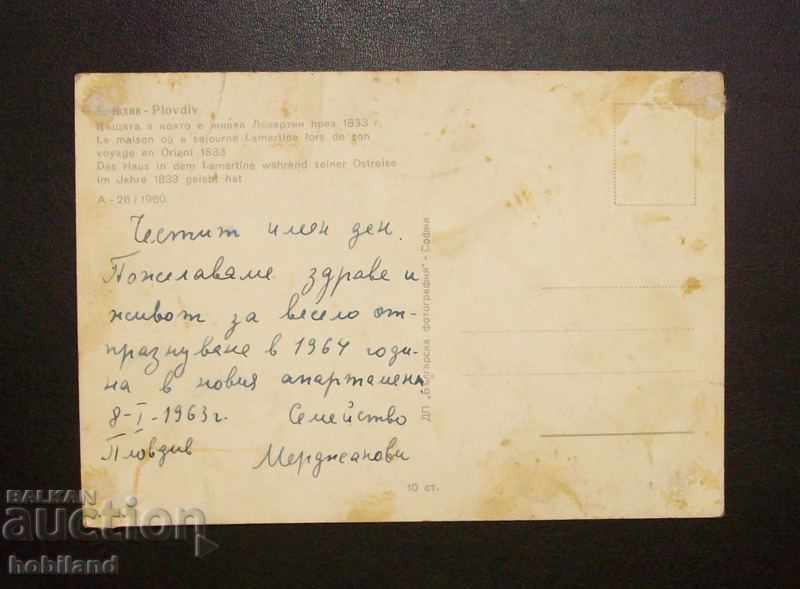 - Plovdiv
Къщата в която е живял Ламартин през 1833 г.
Le maison où a séjourné Lamartine lors de son
voyage en Orient 1833
Das Haus in dem Lamartine während seiner Ostreise
im Jahre 1833 gelebt hat
А-26 / 1960
Честит имен ден.
Пожелаваме здраве и
живот за весело от-
празнуване в 1964 годи-
на в новия апартамент
8-I-1963г. Семейство
Пловдив Мерджанови
10 ст.
ДП „Българска фотография" - София
BALKAN
auction
hobiland